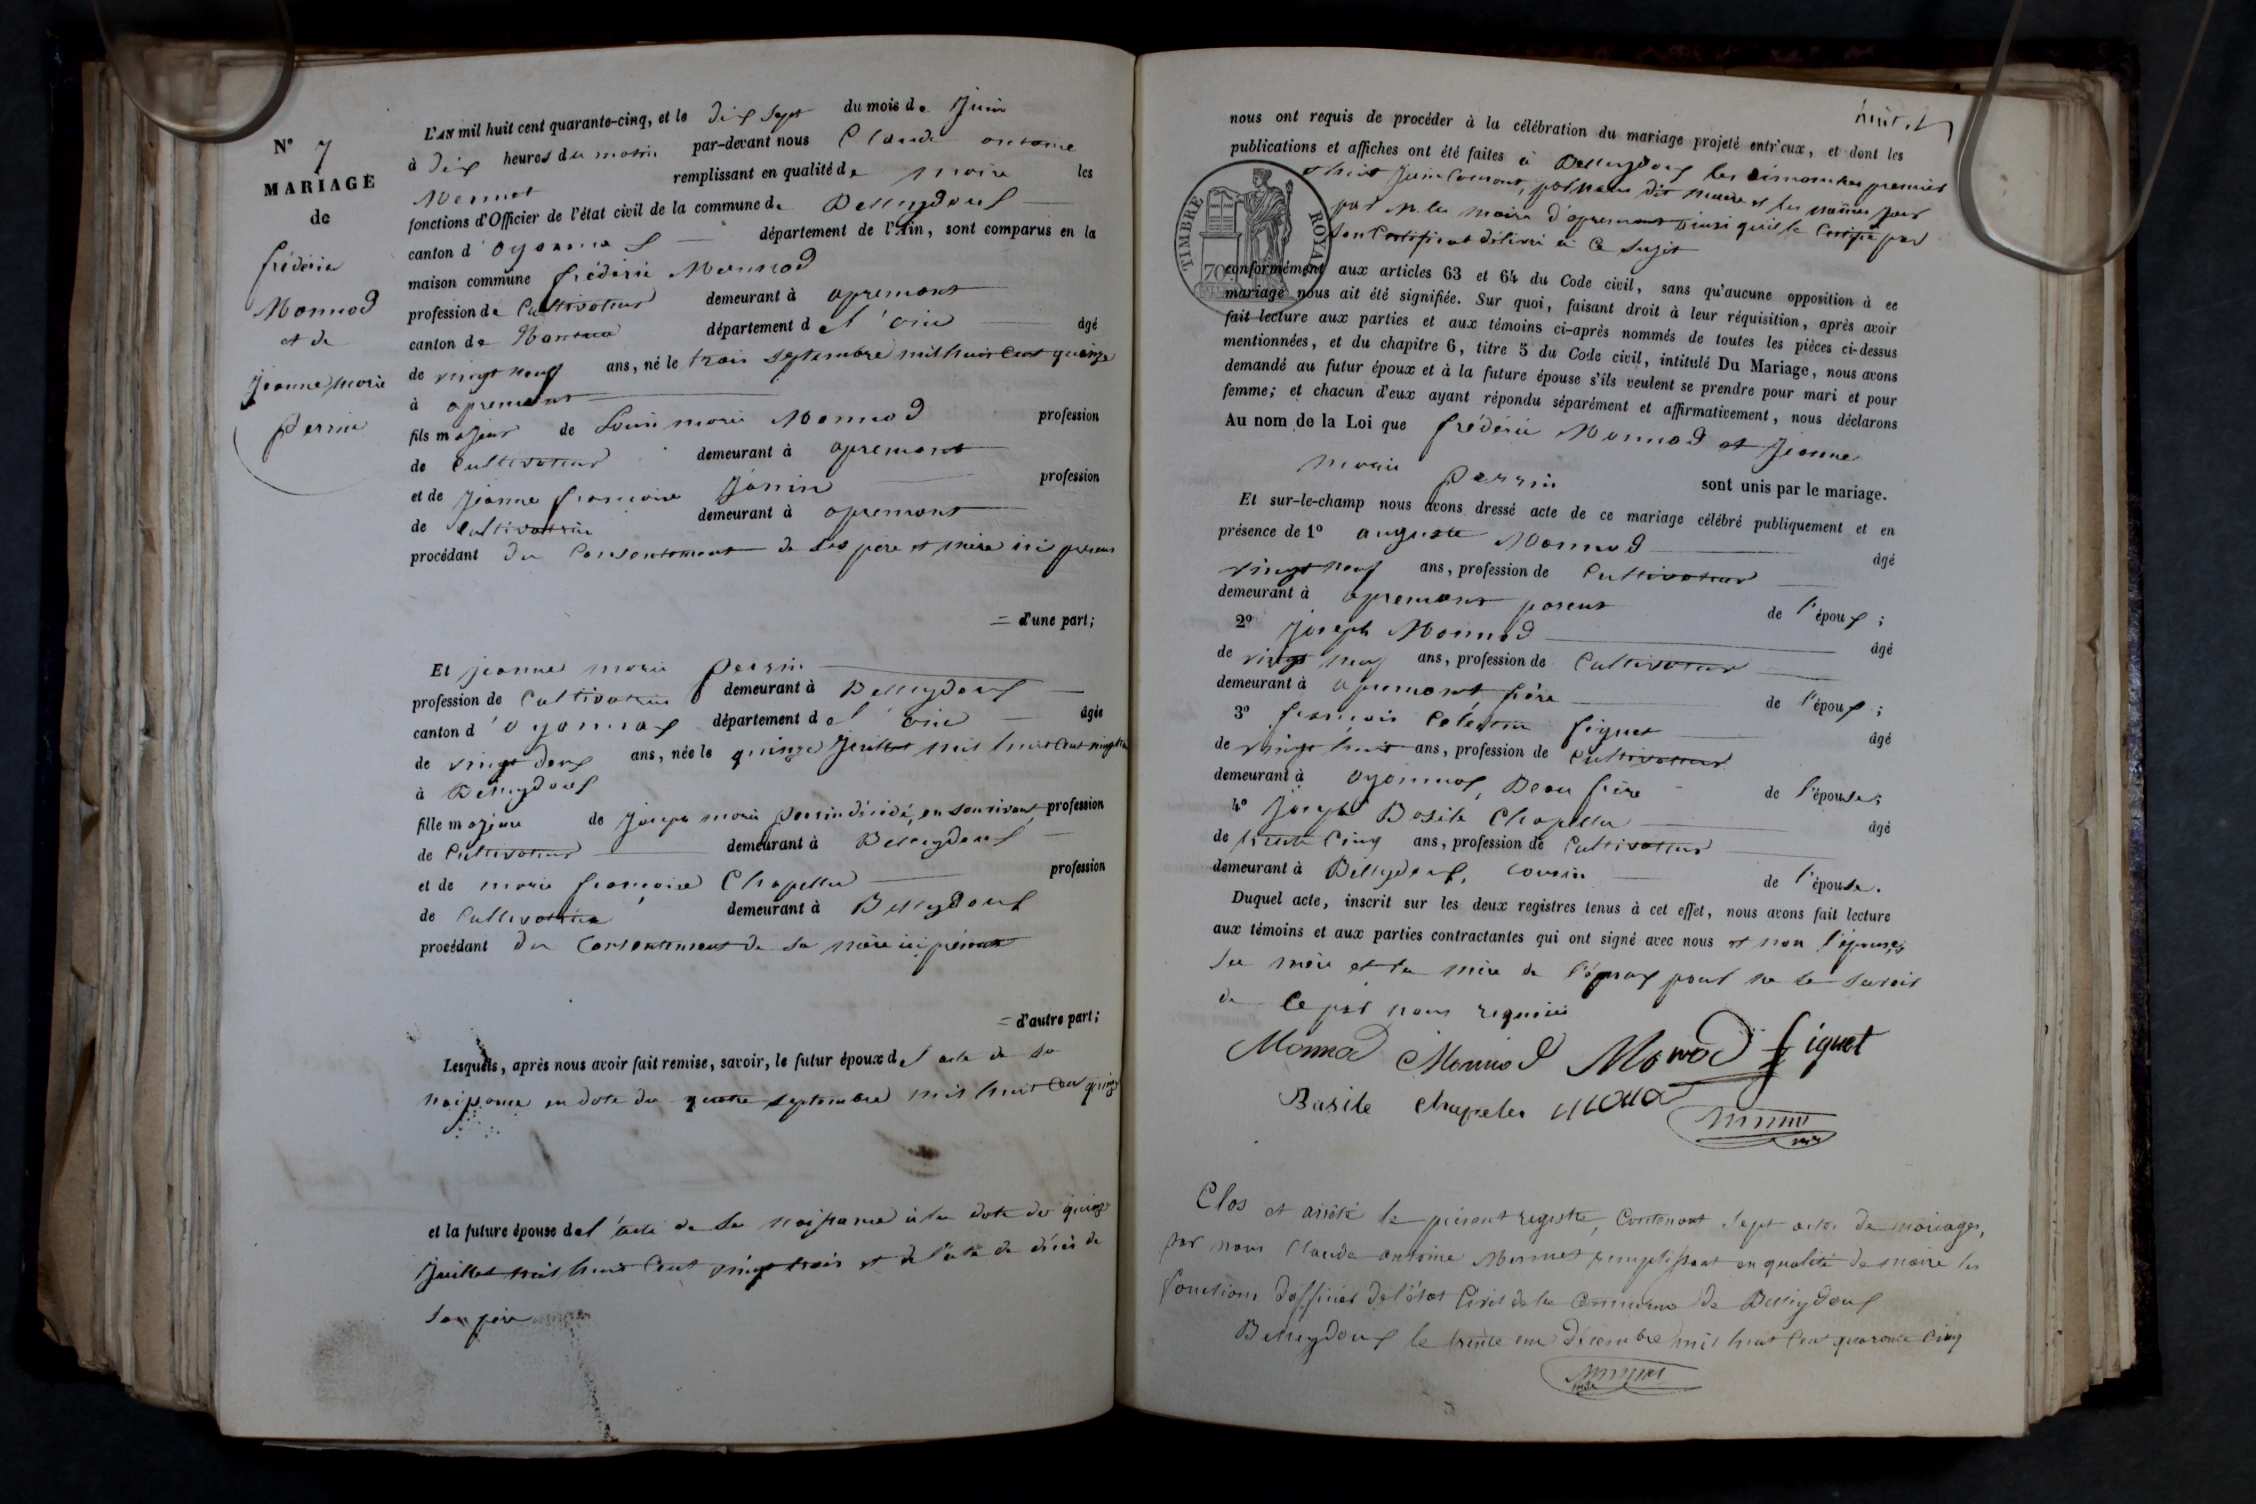 N° 7
MARIAGE
de
frédéric
Monnod
et de
Jeanne marie
Perrin
L'AN mil huit cent quarante-cinq, et le dix sept du mois de Juin
à dix heures du matin par-devant nous Claude antoine
Mermet remplissant en qualité de maire les
fonctions d'Officier de l'état civil de la commune de Belleydoux
canton d'oyonnax département de l'Ain, sont comparus en la
maison commune frédéric Monnod
profession de Cultivateur demeurant à apremont
canton de Nantua département de l'ain âgé
de vingt neuf ans, né le trois septembre mil huit Cent quinze
à apremont
fils majeur de Louis marie Monnod profession
de Cultivateur demeurant à apremont
et de Jeanne francoise Janin profession
de Cultivatrice demeurant à apremont
procédant du Consentement de ses père et mère ici présens
= d'une part;
Et jeanne marie Perrin
profession de Cultivatrice demeurant à Belleydoux
canton d'oyonnax département de l'ain âgée
de vingt deux ans, née le quinze Juillet mil huit Cent vingt trois
à Belleydoux
fille majeure de Joseph marie Perrin décédé, en son vivant, profession
de Cultivateur demeurant à Belleydoux
et de marie francoise Chapellu profession
de Cultivatrice demeurant à Belleydoux
procédant du Consentement de sa mère ici présente
= d'autre part;
Lesquels, après nous avoir fait remise, savoir, le futur époux de l'acte de sa
naissance en date du quatre septembre mil huit Cent quinze
et la future épouse de l'acte de sa naissance à la date du quinze
Juillet mil huit Cent vingt trois et de l'acte de décès de
son père
huit
nous ont requis de procéder à la célébration du mariage projeté entr'eux, et dont les
publications et affiches ont été faites à Belleydoux les dimanches premier
et huit Juin Courant, par nous dit maire et les mêmes jours
par M. le maire d'apremont ainsi qu'il le Certifie par
son Certificat délivré à Ce sujet
TIMBRE ROYAL
70
conformément aux articles 63 et 64 du Code civil, sans qu'aucune opposition à ce
mariage nous ait été signifiée. Sur quoi, faisant droit à leur réquisition, après avoir
fait lecture aux parties et aux témoins ci-après nommés de toutes les pièces ci-dessus
mentionnées, et du chapitre 6, titre 5 du Code civil, intitulé Du Mariage, nous avons
demandé au futur époux et à la future épouse s'ils veulent se prendre pour mari et pour
femme; et chacun d'eux ayant répondu séparément et affirmativement, nous déclarons
Au nom de la Loi que frédéric Monnod et Jeanne
marie Perrin sont unis par le mariage.
Et sur-le-champ nous avons dressé acte de ce mariage célébré publiquement et en
présence de 1° auguste Monnod âgé
vingt neuf ans, profession de Cultivateur
demeurant à apremont parent de l'époux;
2° Joseph Monnod âgé
de vingt neuf ans, profession de Cultivateur
demeurant à apremont, frère de l'époux;
3° francois Celestin figuet âgé
de vingt huit ans, profession de Cultivateur
demeurant à oyonnax, Beau frère de l'épouse;
4° Joseph Basile Chapellu âgé
de trente Cinq ans, profession de Cultivateur
demeurant à Belleydoux, cousin de l'épouse.
Duquel acte, inscrit sur les deux registres tenus à cet effet, nous avons fait lecture
aux témoins et aux parties contractantes qui ont signé avec nous et non l'épouse,
sa mère et la mère de l'époux pour ne le savoir
de Ce par nous requises
Monnod Monnod Monod figuet
Basile Chapelu
Mermet
Clos et arrêté le présent registre, Contenant sept actes de mariages,
par nous Claude antoine Mermet remplissant en qualité de maire les
fonctions d'officier de l'état Civil de la Commune de Belleydoux
Belleydoux le trente un Décembre mil huit Cent quarante Cinq
Mermet